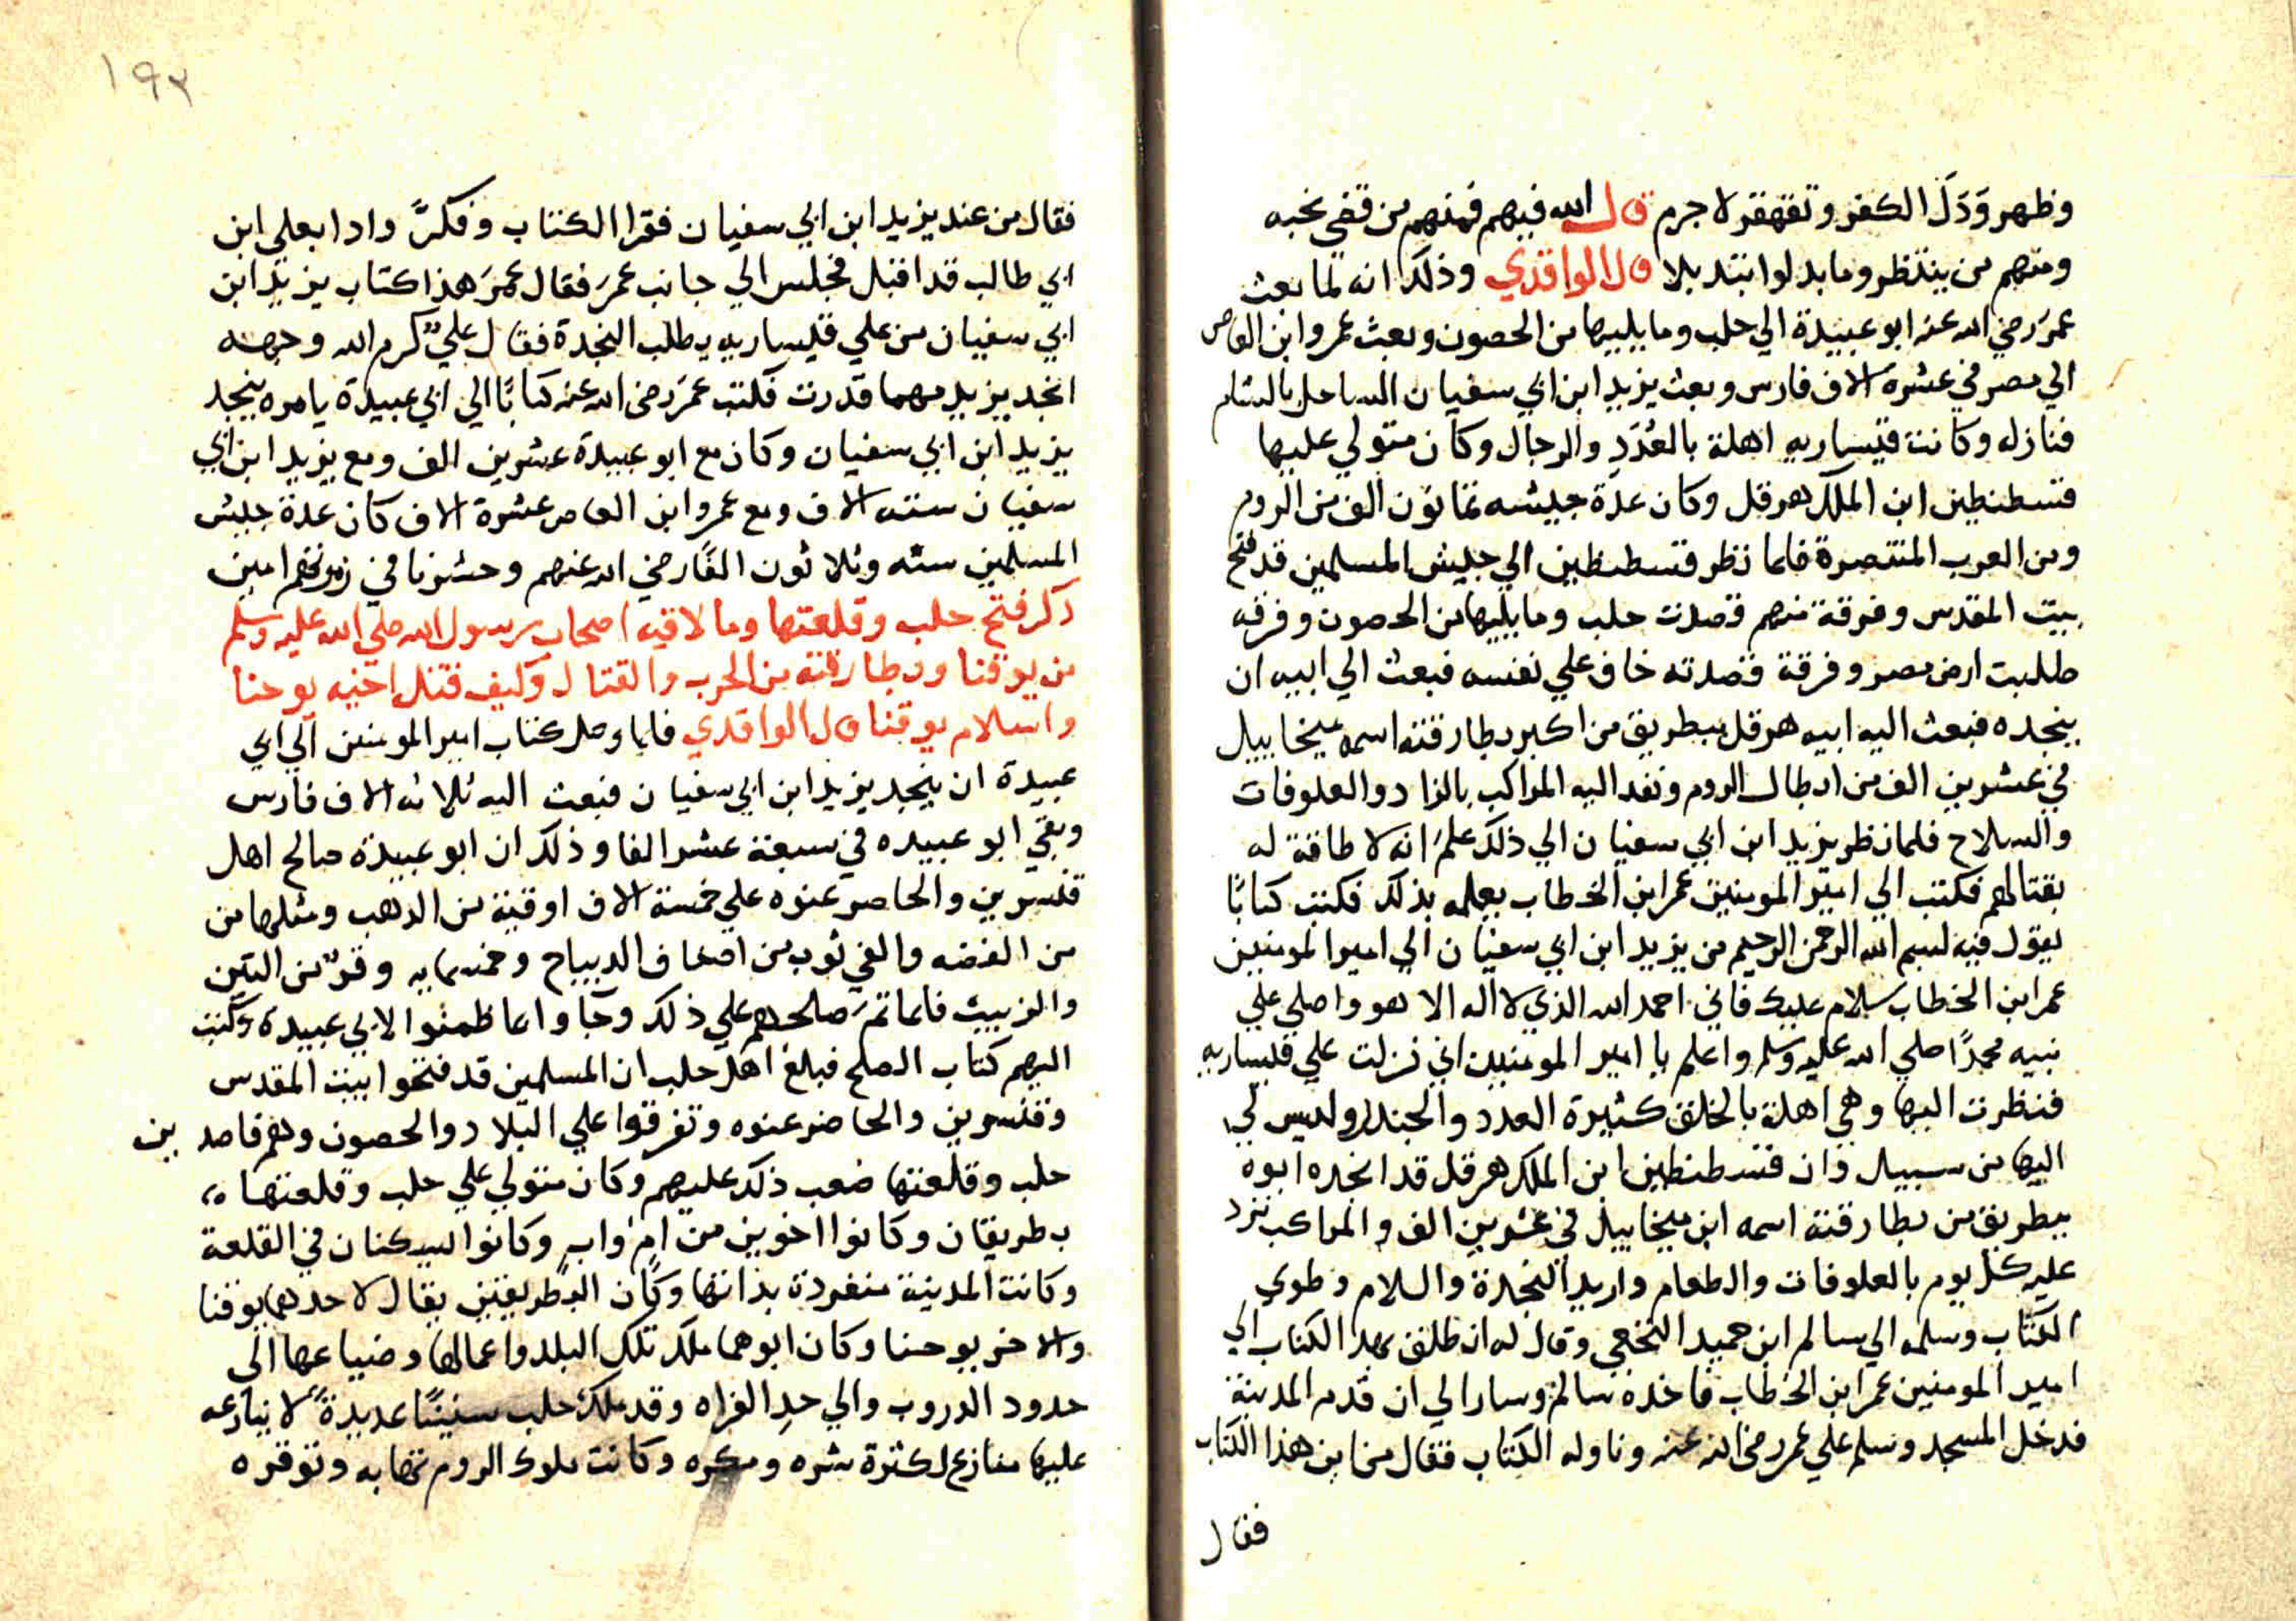 وظهر وَدَلَ الكفر وتقهقر لا جرم قال الله فيهم فمنهم من قضى نحبه
ومنهم من ينتظر وما بدلوا تبديلا قال الواقدي وذلك انه لما بعث
عمرَ رضي الله عنه ابو عبيدة الي حلب وما يليها من الحصون وبعث عمروا ابن العاص
الي مصر في عشرة الاف فارس وبعث يزيد ابن ابي سفيان الساحل بالشام
فنازله وكانت قيساريه اهلة بالعُدَدِ والرجال وكان متولي عليها
قسطنطين ابن الملك هرقل وكان عدة جيشه ثمانون الف من الروم
ومن العرب المنتصرة فلما نظر قسطنطين الي جيش المسلمين قد فتح
بيت المقدس وفرقة منهم قصدت حلب وما يليها من الحصون وفرقه
طلبت ارض مصر وفرقة قصدته خاف علي نفسه فبعث الي ابيه ان
ينجده فبعث اليه ابيه هرقل ببطريق من اكبر بطارقته اسمه ميخاييل
في عشرين الف من ابطال الروم ونفد اليه المراكب بالزاد والعلوفات
والسلاح فلما نظر يزيد ابن ابي سفيان الي ذلك علمَ انه لا طاقة له
بقتالهم فكتب الي امير المومنين عمر ابن الخطاب يعلمه بذلك فكتب كتابًا
يقول فيه بسم الله الرحمن الرحيم من يزيد ابن ابي سفيان الي امير المومنين
عمر ابن الخطاب سلام عليك فاني احمد الله الذي لا اله الا هو واصلي علي
نبيه محمدًا صلي الله عليه وسلم واعلم يا امير المومنين اني نزلت علي قيساريه
فنظرت اليها وهي اهلة بالخلق كثيرة العدد والجند وليس لي
اليها من سبيل وان قسطنطين ابن الملك هرقل قد انجده ابوه
ببطريق من بطارقته اسمه ابن ميخاييل في عشرين الف والمراكب ترد
عليه كل يوم بالعلوفات والطعام واريد النجدة والسلام وطوي
الكتاب وسلمه الي سالم ابن حميد النخعي وقال له انطلق بهذا الكتاب الي
امير المومنين عمر ابن الخطاب فاخده سالم وسار الي ان قدم المدينة
فدخل المسجد وسلم علي عمر رضي الله عنه وناوله الكتاب فقال من اين هذا الكتاب
فقال
١٩٣
فقال من عند يزيد ابن ابي سفيان فقرا الكتاب وفكرَّ واذا بعلي ابن
ابي طالب قد اقبل فجلس الي جانب عمرَ فقال عمرَ هذا كتاب يزيد ابن
ابي سفيان من علي قيساريه يطلب النجدة فقال علي كرم الله وجهه
انجد يزيد مهما قدرت فكتب عمرَ رضي الله عنه كتابًا الي ابي عبيدة يامره ينجد
يزيد ابن ابي سفيان وكان مع ابو عبيدة عشرين الف ومع يزيد ابن ابي
سفيان سته الاف ومع عمروا ابن العاص عشرة الاف كان عدة جيش
المسلمين سته وثلاثون الفًا رضي الله عنهم وحشرنا في زمرتهم امين
ذكر فتح حلب وقلعتها وما لاقيه اصحاب رسول الله صلي الله عليه وسلم
من يوقنا وبطارقته من الحرب والقتال وكيف قتل اخيه يوحنا
واسلام يوقنا قال الواقدي فلما وصل كتاب امير المومنين الي ابي
عبيدة ان ينجد يزيد ابن ابي سفيان فبعث اليه ثلاثه الاف فارس
وبقي ابو عبيده في سبعة عشر الفا وذلك ان ابو عبيدة صالح اهل
قنسرين والحاصر عنوه علي خمسة الاف اوقية من الدهب ومثلها من
من الفضه والفي ثوب من اصناف الديباج وخمسمايه وقر من التين
والزبيب فلما تمَ صلحهم علي ذلك وجاوا بما ظمنوا لابي عبيدة وكتب
اليهم كتاب الصلح فبلغ اهل حلب ان المسلمين قد فتحوا بيت المقدس
وقنسرين والحاضر عنوه وتفرقوا علي البلاد والحصون وهم قاصدين
حلب وقلعتها صعب ذلك عليهم وكان متولي علي حلب وقلعتها
بطريقان وكانوا اخوين من امٍ وابٍ وكانوا يسكنان في القلعة
وكانت المدينة منفردة بذاتها وكان البطريقين يقال لاحدهما يوقنا
والاخر يوحنا وكان ابوهما ملك تلك البلد واعمالها وضياعها الي
حدود الدروب والي حدِ الفراه وقد ملك حلب سنينًا عديدةً لا ينازعه
عليها منازع لكثرة شره ومكره وكانت ملوك الروم تهابه وتوقره